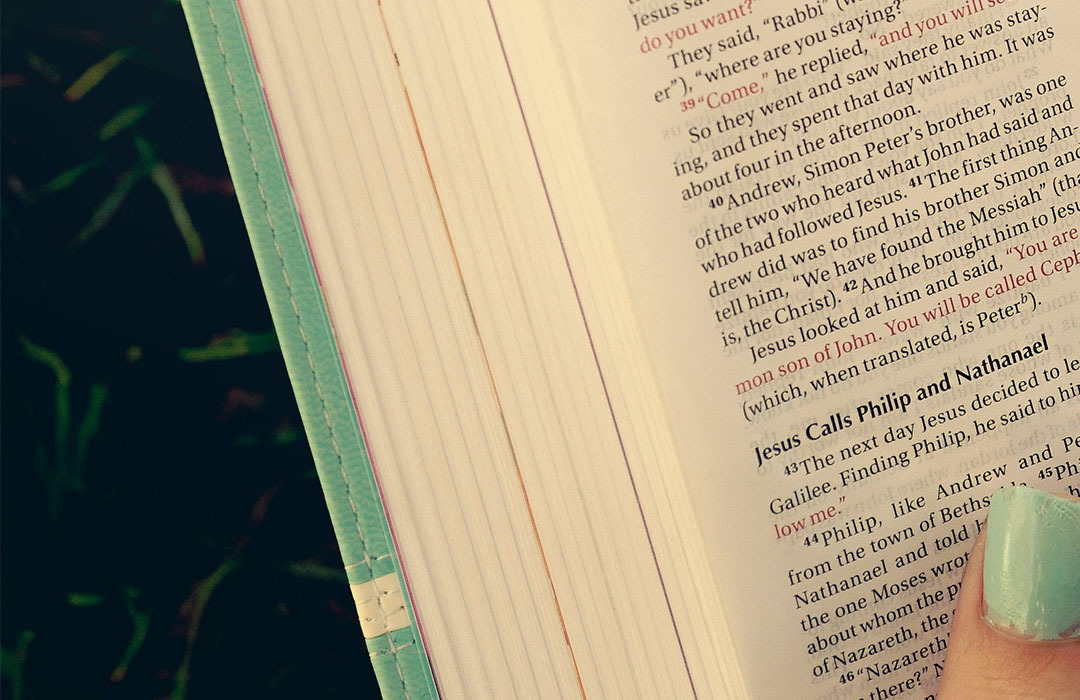 Jesus sa
do you want?"
They said, "Rabbi"
er"), "where are you staying?"
39 "Come," he replied, "and you will se
So they went and saw where he was stay-
ing, and they spent that day with him. It was
about four in the afternoon.
40 Andrew, Simon Peter's brother, was one
of the two who heard what John had said and
who had followed Jesus. 41 The first thing An-
drew did was to find his brother Simon and
tell him, "We have found the Messiah" (tha
is, the Christ). 42 And he brought him to Jesu
Jesus looked at him and said, "You are
mon son of John. You will be called Ceph
(which, when translated, is Peter b).
Jesus Calls Philip and Nathanael
43 The next day Jesus decided to le
Galilee. Finding Philip, he said to him
low me."
44 Philip, like Andrew and Pe
from the town of Beths 45 Phi
Nathanael and told h
the one Moses wrot
about whom the p
of Nazareth, the
46 "Nazareth
n there?" N